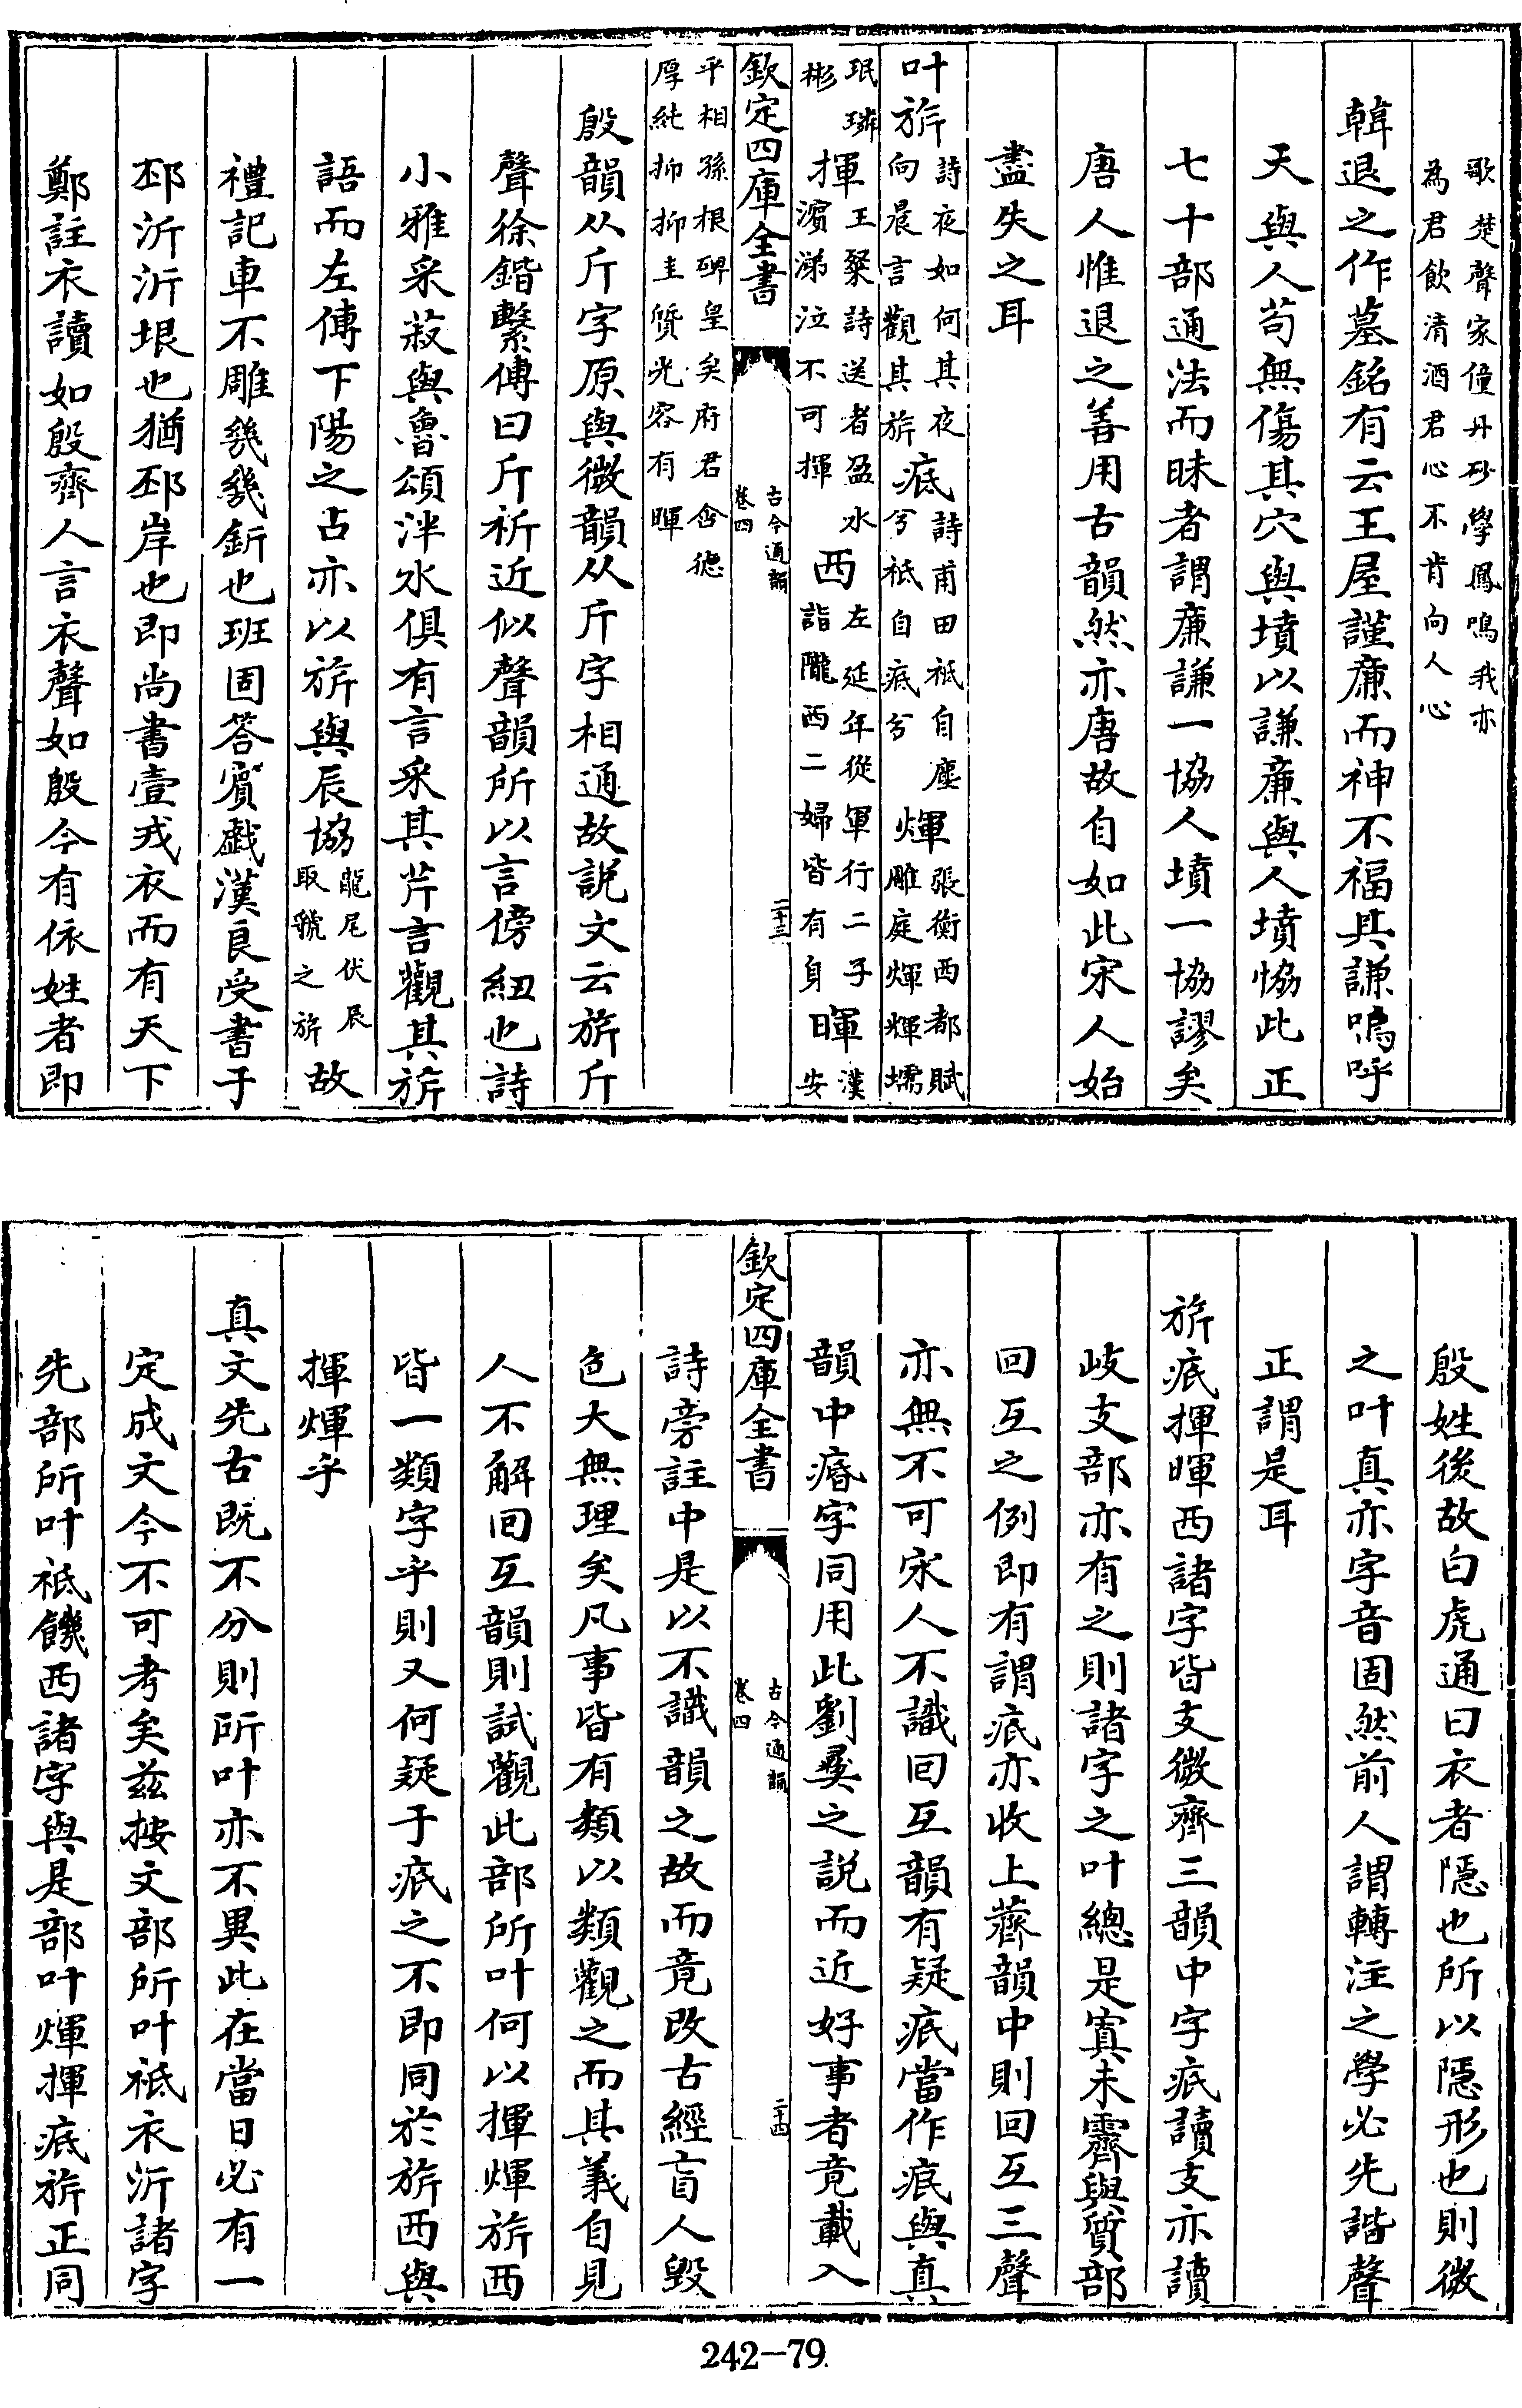 歌楚聲家僮丹砂學鳳鳴我亦
為君飲清酒君心不肯向人心
韓退之作墓銘有云王屋謹亷而神不福其謙嗚呼
天與人茍無傷其穴與墳以謙亷與人墳恊此正
七十部通法而昧者謂亷謙一協人墳一協謬矣
唐人惟退之善用古韻然亦唐故自如此宋人始
盡失之耳
叶旂詩夜如何其夜向晨言觀其旂疷詩甫田祗自塵兮祗自疷兮煇張衡西都賦雕庭煇煇壖
珉璘彬揮王粲詩送者盈水濱涕泣不可揮西左延年從軍行二子詣隴西二婦皆有身暉漢安
平相孫根碑皇矣府君含德
厚純抑抑圭質光容有暉
欽定四庫全書
古今通韻
卷四
二十三
殷韻从斤字原與微韻从斤字相通故説文云旂斤
聲徐鍇繫傳曰斤祈近似聲韻所以言傍紐也詩
小雅采菽與魯頌泮水俱有言采其芹言觀其旂
語而左傳下陽之占亦以旂與辰協龍尾伏辰取虢之旂故
禮記車不雕幾幾釿也班固答賓戱漢良受書于
邳沂沂垠也猶邳岸也即尚書壹戎衣而有天下
鄭註衣讀如殷齊人言衣聲如殷今有㐆姓者即
殷姓後故白虎通曰衣者隠也所以隠形也則微
之叶真亦字音固然前人謂轉注之學必先諧聲
正謂是耳
旂疷揮暉西諸字皆支微齊三韻中字疷讀支亦讀
岐支部亦有之則諸字之叶總是寘未霽與質部
回互之例即有謂疷亦收上薺韻中則回互三聲
亦無不可宋人不識回互韻有疑疷當作痕與真
韻中㾕字同用此劉彜之説而近好事者竟載入
欽定四庫全書
古今通韻
卷四
二十四
詩旁註中是以不識韻之故而竟改古經盲人毀
色大無理矣凡事皆有類以類觀之而其義自見
人不解回互韻則試觀此部所叶何以揮煇旂西
皆一類字乎則又何疑于疷之不即同於旂西與
揮煇乎
真文先古既不分則所叶亦不異此在當日必有一
定成文今不可考矣兹按文部所叶祗衣沂諸字
先部所叶祗饑西諸字與是部叶煇揮疷旂正同
242-79